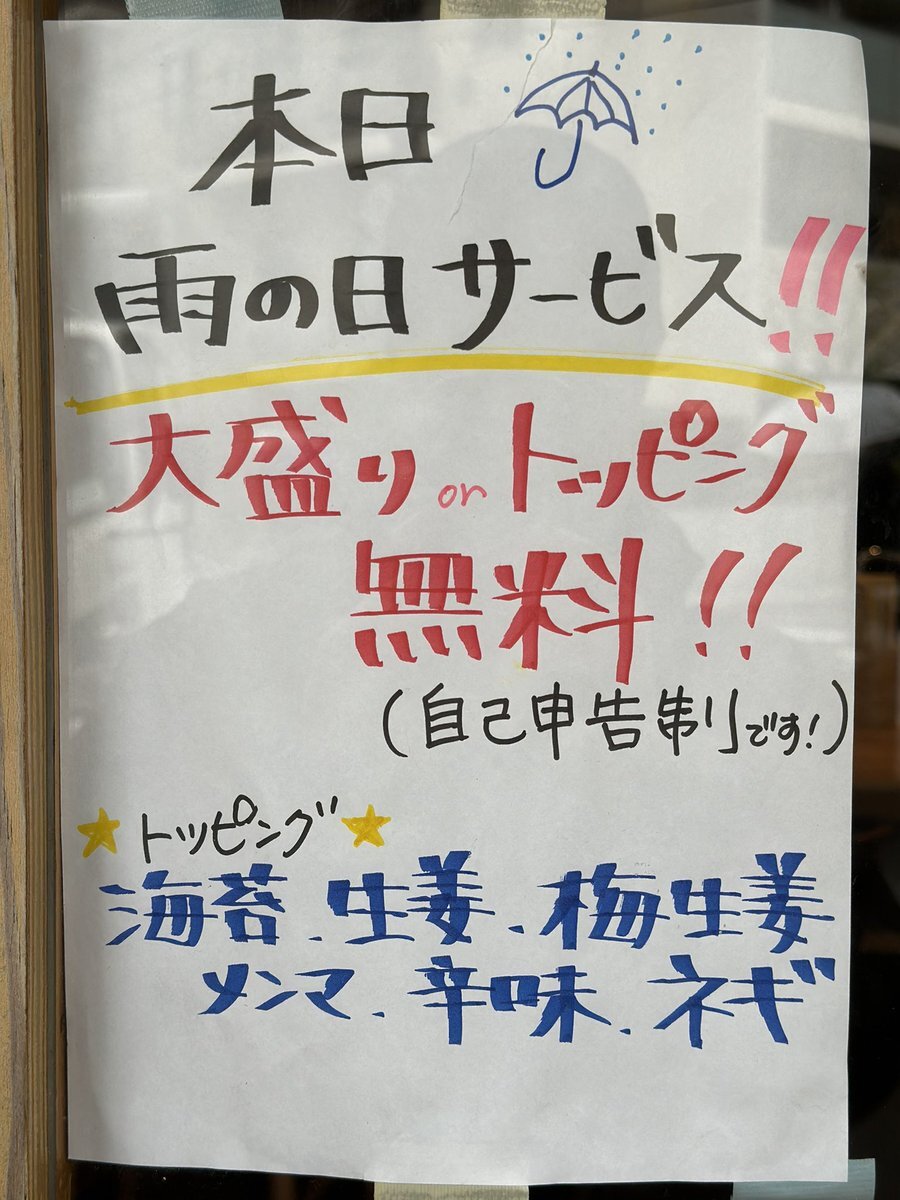 本日
雨の日サービス!!
大盛り or トッピング
無料!!
(自己申告制です!)
★トッピング★
海苔、生姜、梅生姜
メンマ、辛味、ネギ